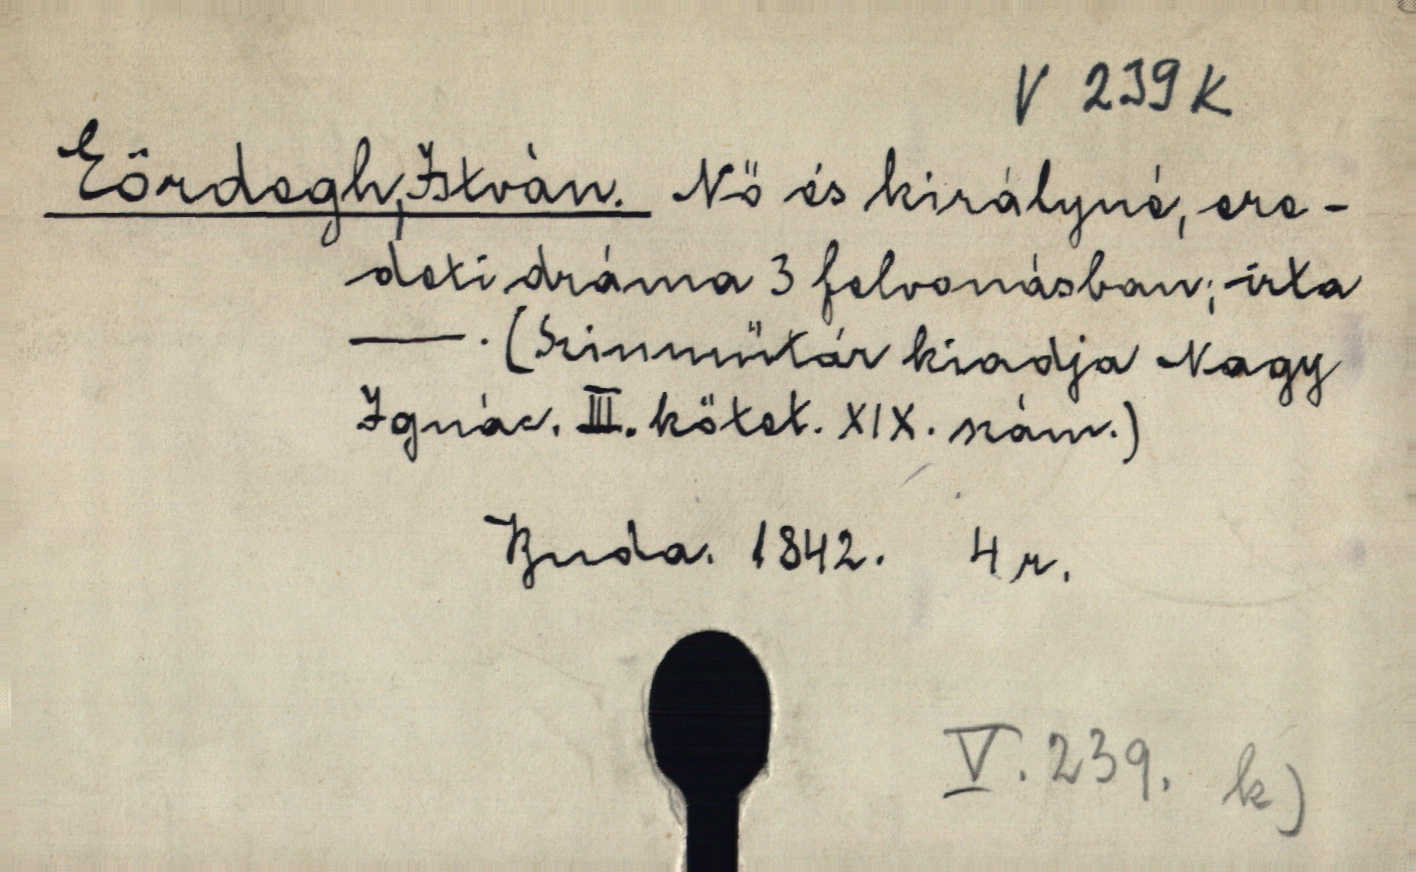 V 239 K
Eördegh, István. Nő és királyné, ere-
deti dráma 3 felvonásban; irta
—. (Szinműtár kiadja Nagy
Ignác. III. kötet. XIX. szám.)
Buda. 1842. 4 r.
V. 239. k)